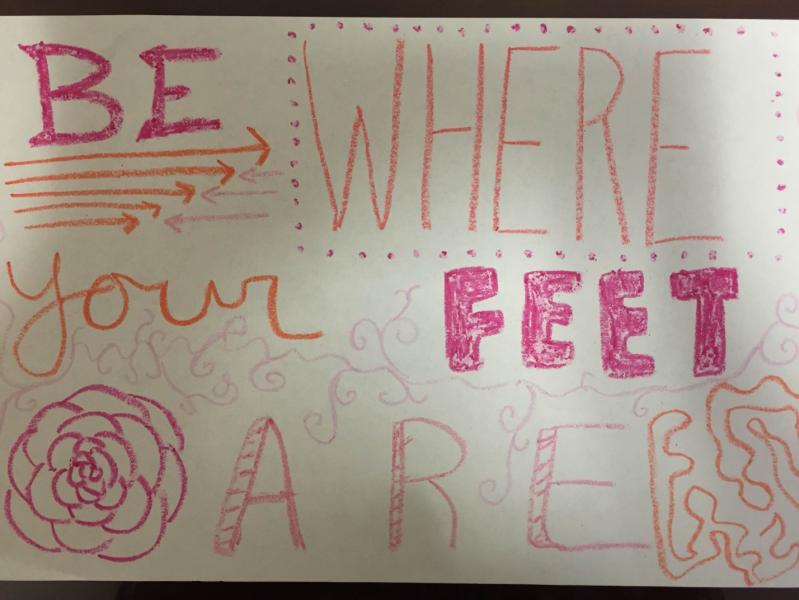 BE WHERE
your FEET
ARE